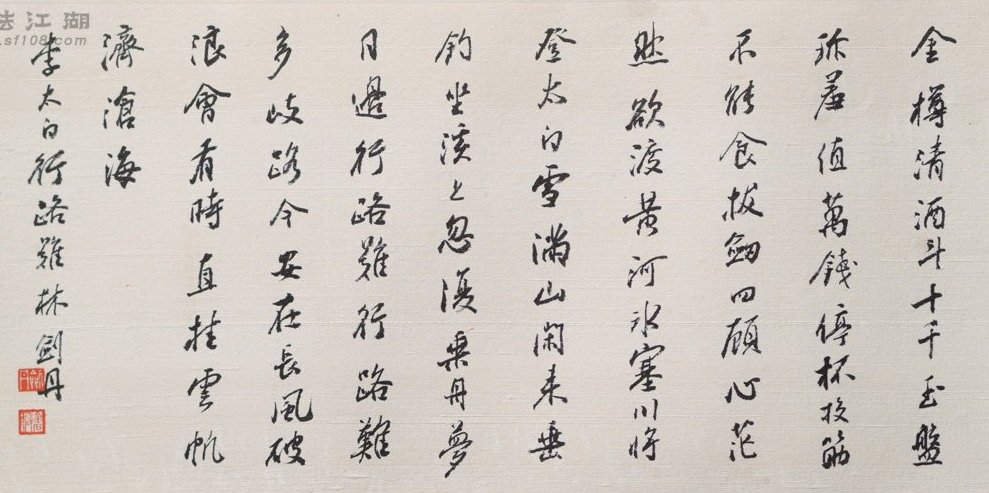 金樽清酒斗十千玉盤
珎羞值萬錢停杯投筯
不能食拔劍四顧心茫
然欲渡黃河冰塞川將
登太白雪滿山閑來垂
釣坐溪上忽復乘舟夢
日邊行路難行路難
多歧路今安在長風破
浪會有時直挂雲帆
濟滄海
李太白行路難林劍丹
法江湖
.sf108.com